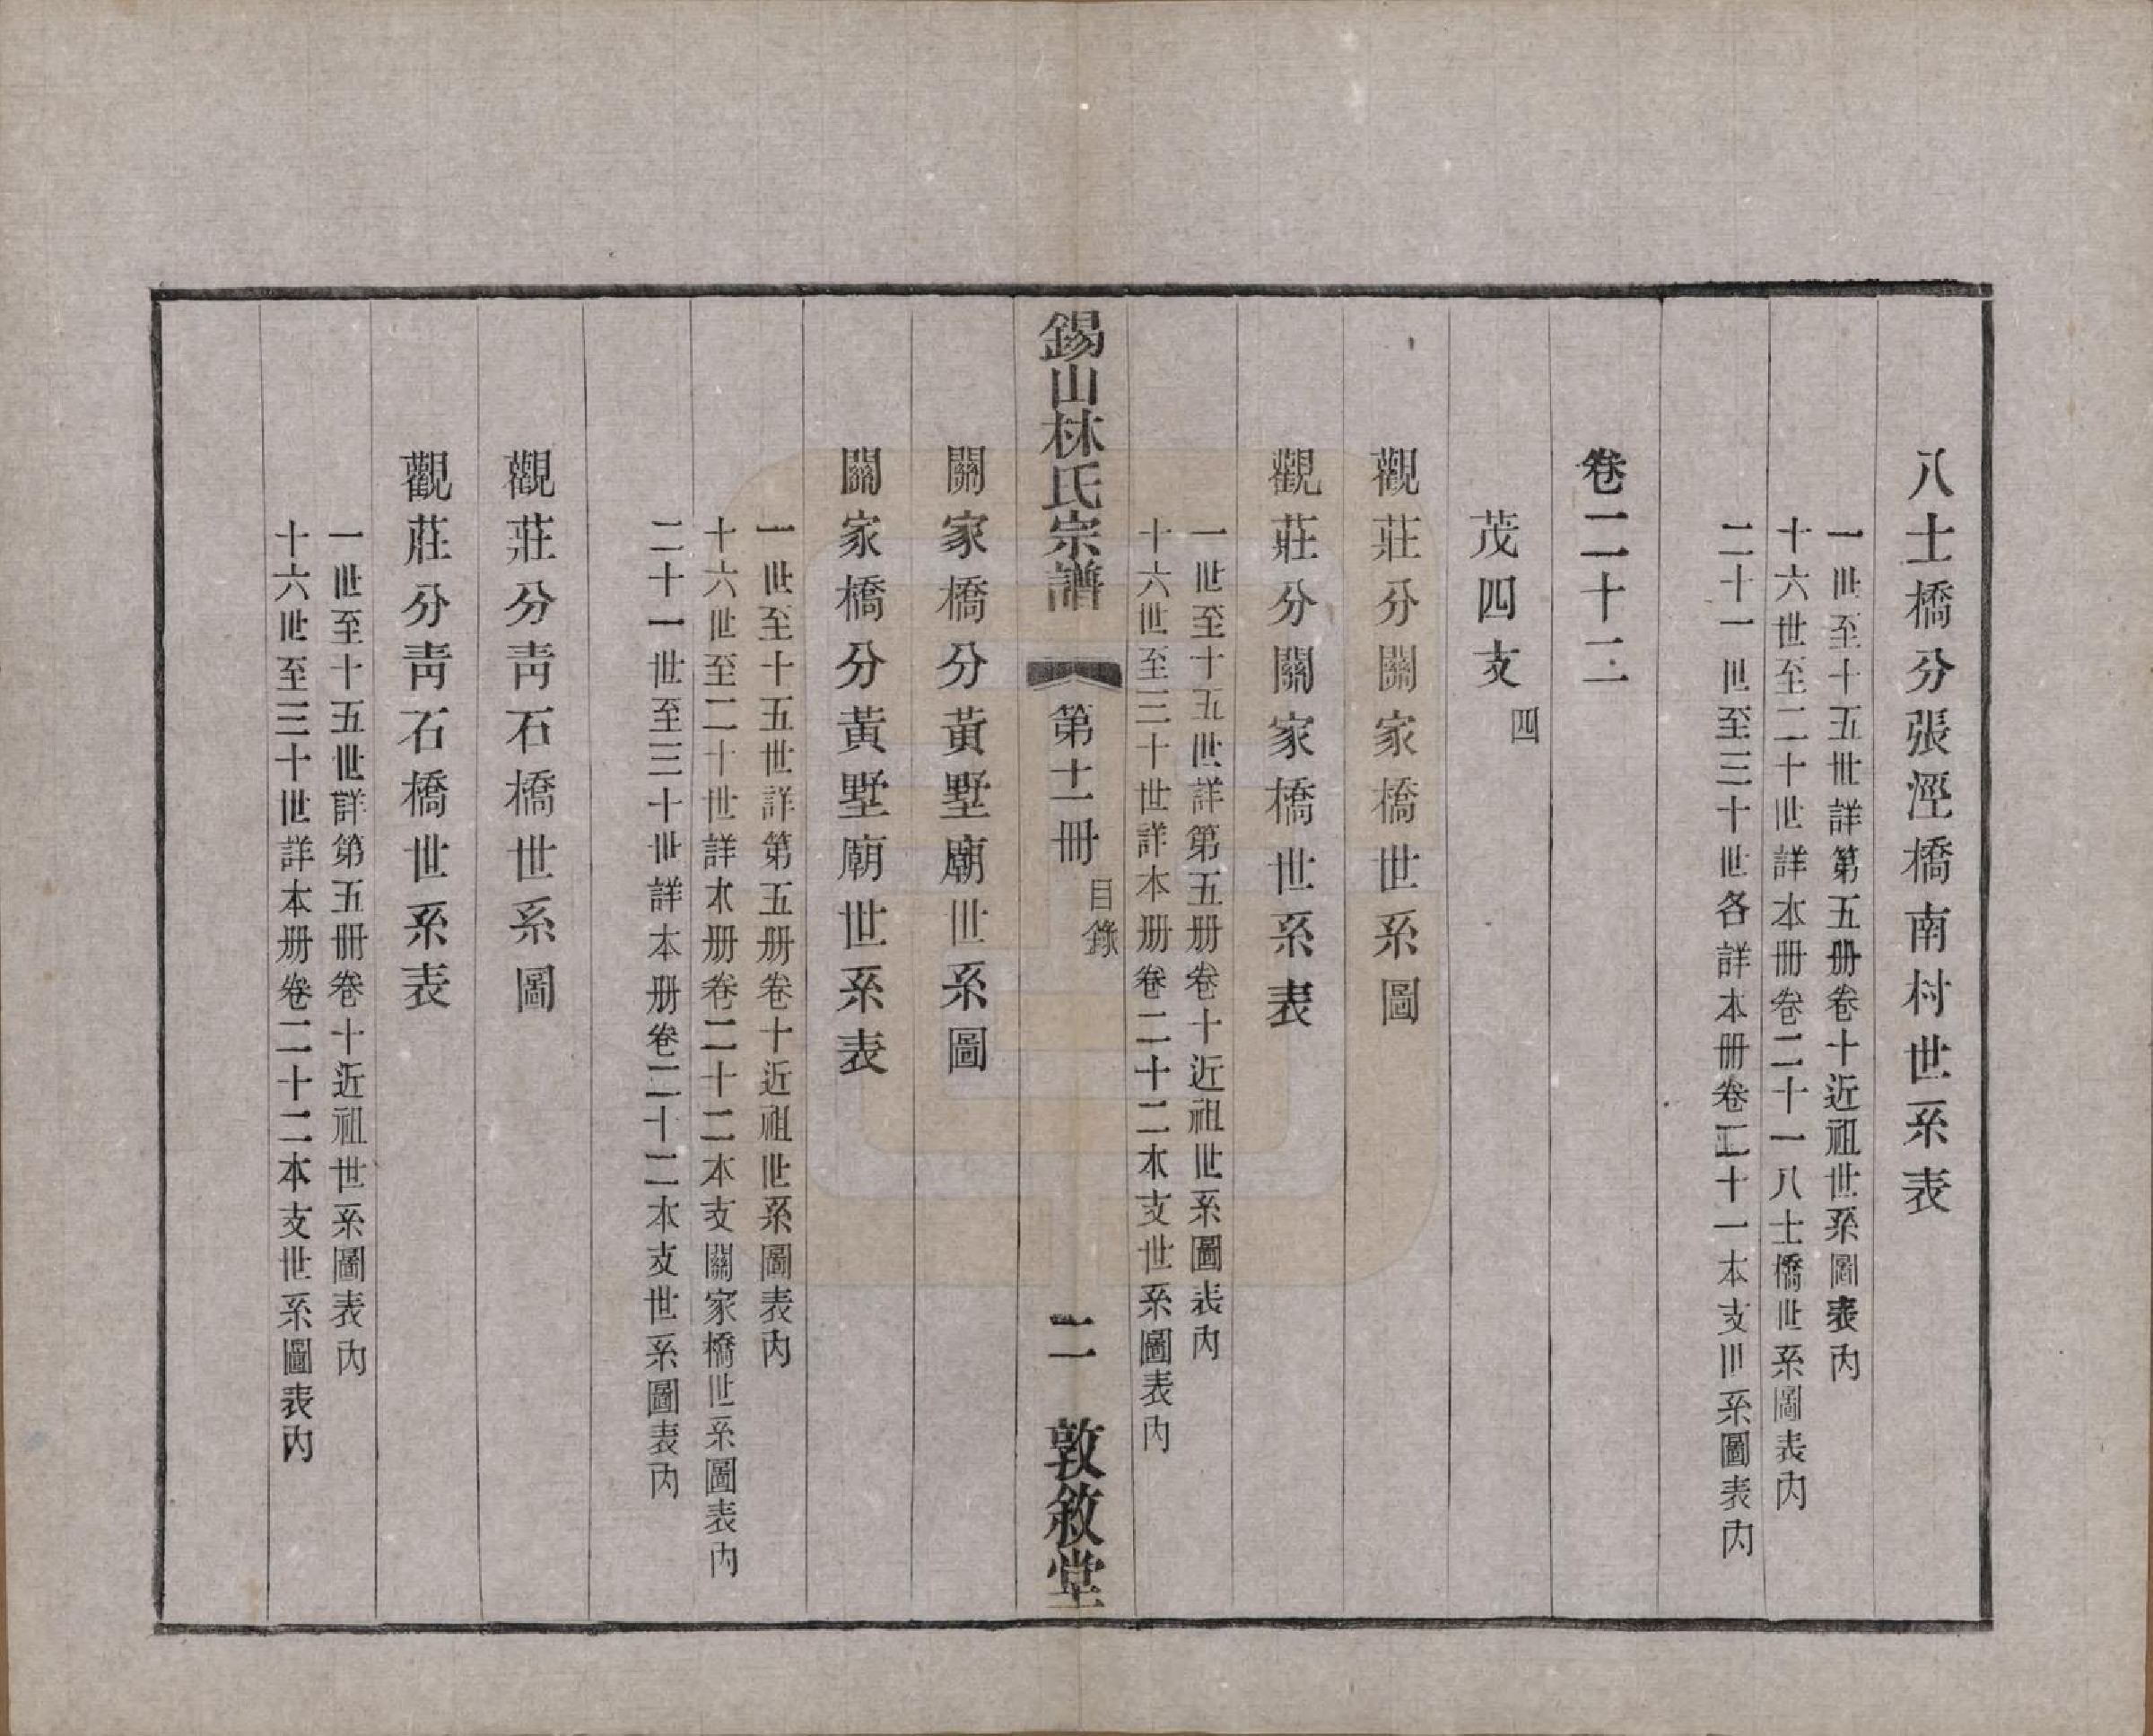 八士橋分張涇橋南村世系表
一世至十五世詳第五册卷十近祖世系圖表內
十六世至二十世詳本册卷二十一八士橋世系圖表內
二十一世至三十世各詳本册卷二十一本支世系圖表內
卷二十二
茂四支四
觀莊分關家橋世系圖
觀莊分關家橋世系表
一世至十五世詳第五册卷十近祖世系圖表內
十六世至三十世詳本册卷二十二本支世系圖表內
錫山林氏宗譜 第十一冊 目錄 二 敦敘堂
關家橋分黃墅廟世系圖
關家橋分黃墅廟世系表
一世至十五世詳第五册卷十近祖世系圖表內
十六世至二十世詳本册卷二十二本支關家橋世系圖表內
二十一世至三十世詳本册卷二十二本支世系圖表內
觀莊分靑石橋世系圖
觀莊分靑石橋世系表
一世至十五世詳第五冊卷十近祖世系圖表內
十六世至三十世詳本册卷二十二本支世系圖表內